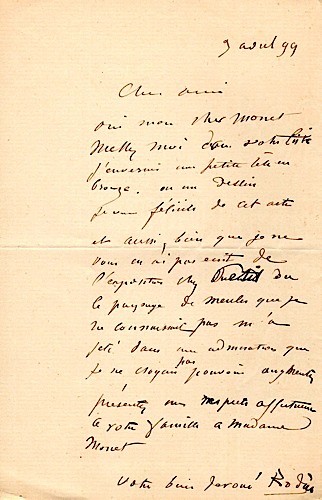 9 avril 99
Cher ami
oui mon cher Monet
Mettez moi dans votre liste
j'enverrai une petite tête en
bronze. ou un dessin
je vous félicite de cet acte
et aussi, bien que je ne
vous en ai pas écrit de
l'exposition chez Petit du
le paysage de meules que je
ne connaissais pas m'a
jeté dans une admiration que
je ne croyais pas pouvoir augmenter
présentez mes respects affectueux
à votre famille à Madame
Monet
Votre bien dévoué Rodin